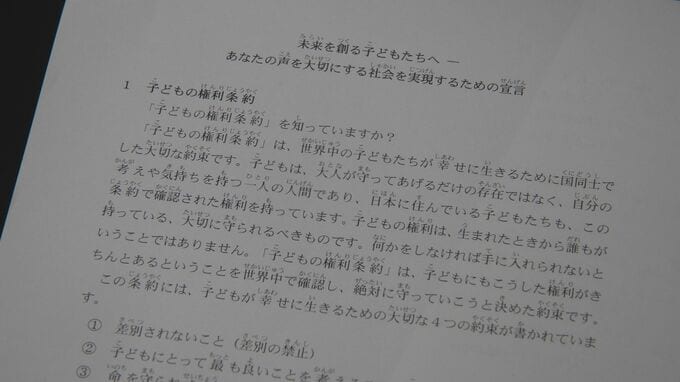 未来を創る子どもたちへ ―
あなたの声を大切にする社会を実現するための宣言
1 子どもの権利条約
「子どもの権利条約」を知っていますか?
「子どもの権利条約」は、世界中の子どもたちが幸せに生きるために国同士で
した大切な約束です。子どもは、大人が守ってあげるだけの存在ではなく、自分の
考えや気持ちを持つ一人の人間であり、日本に住んでいる子どもたちも、この
条約で確認された権利を持っています。子どもの権利は、生まれたときから誰もが
持っている、大切に守られるべきものです。何かをしなければ手に入れられないと
いうことではありません。「子どもの権利条約」は、子どもにもこうした権利がき
ちんとあるということを世界中で確認し、絶対に守っていこうと決めた約束です。
この条約には、子どもが幸せに生きるための大切な4つの約束が書かれていま
す。
① 差別されないこと(差別の禁止)
② 子どもにとって最も良いことを考え
③ 命を守られ